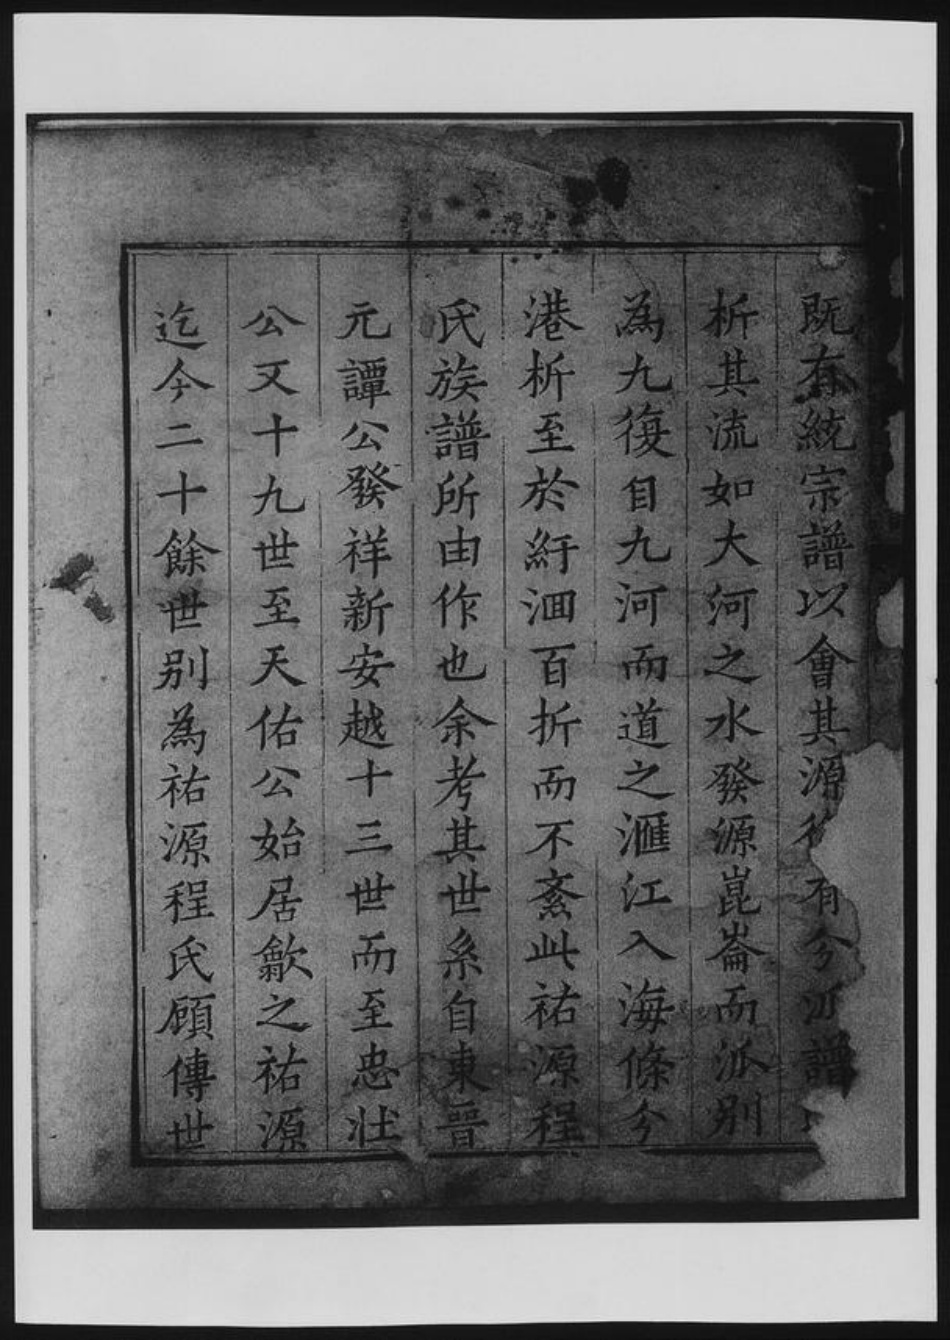 既有統宗譜以會其源復有分派譜
析其流如大河之水發源崑崙而派别
為九復自九河而道之滙江入海條分
港析至於紆洄百折而不紊此祐源程
氏族譜所由作也余考其世系自東晋
元譚公發祥新安越十三世而至忠壯
公又十九世至天佑公始居歙之祐源
迄今二十餘世别為祐源程氏顧傳世